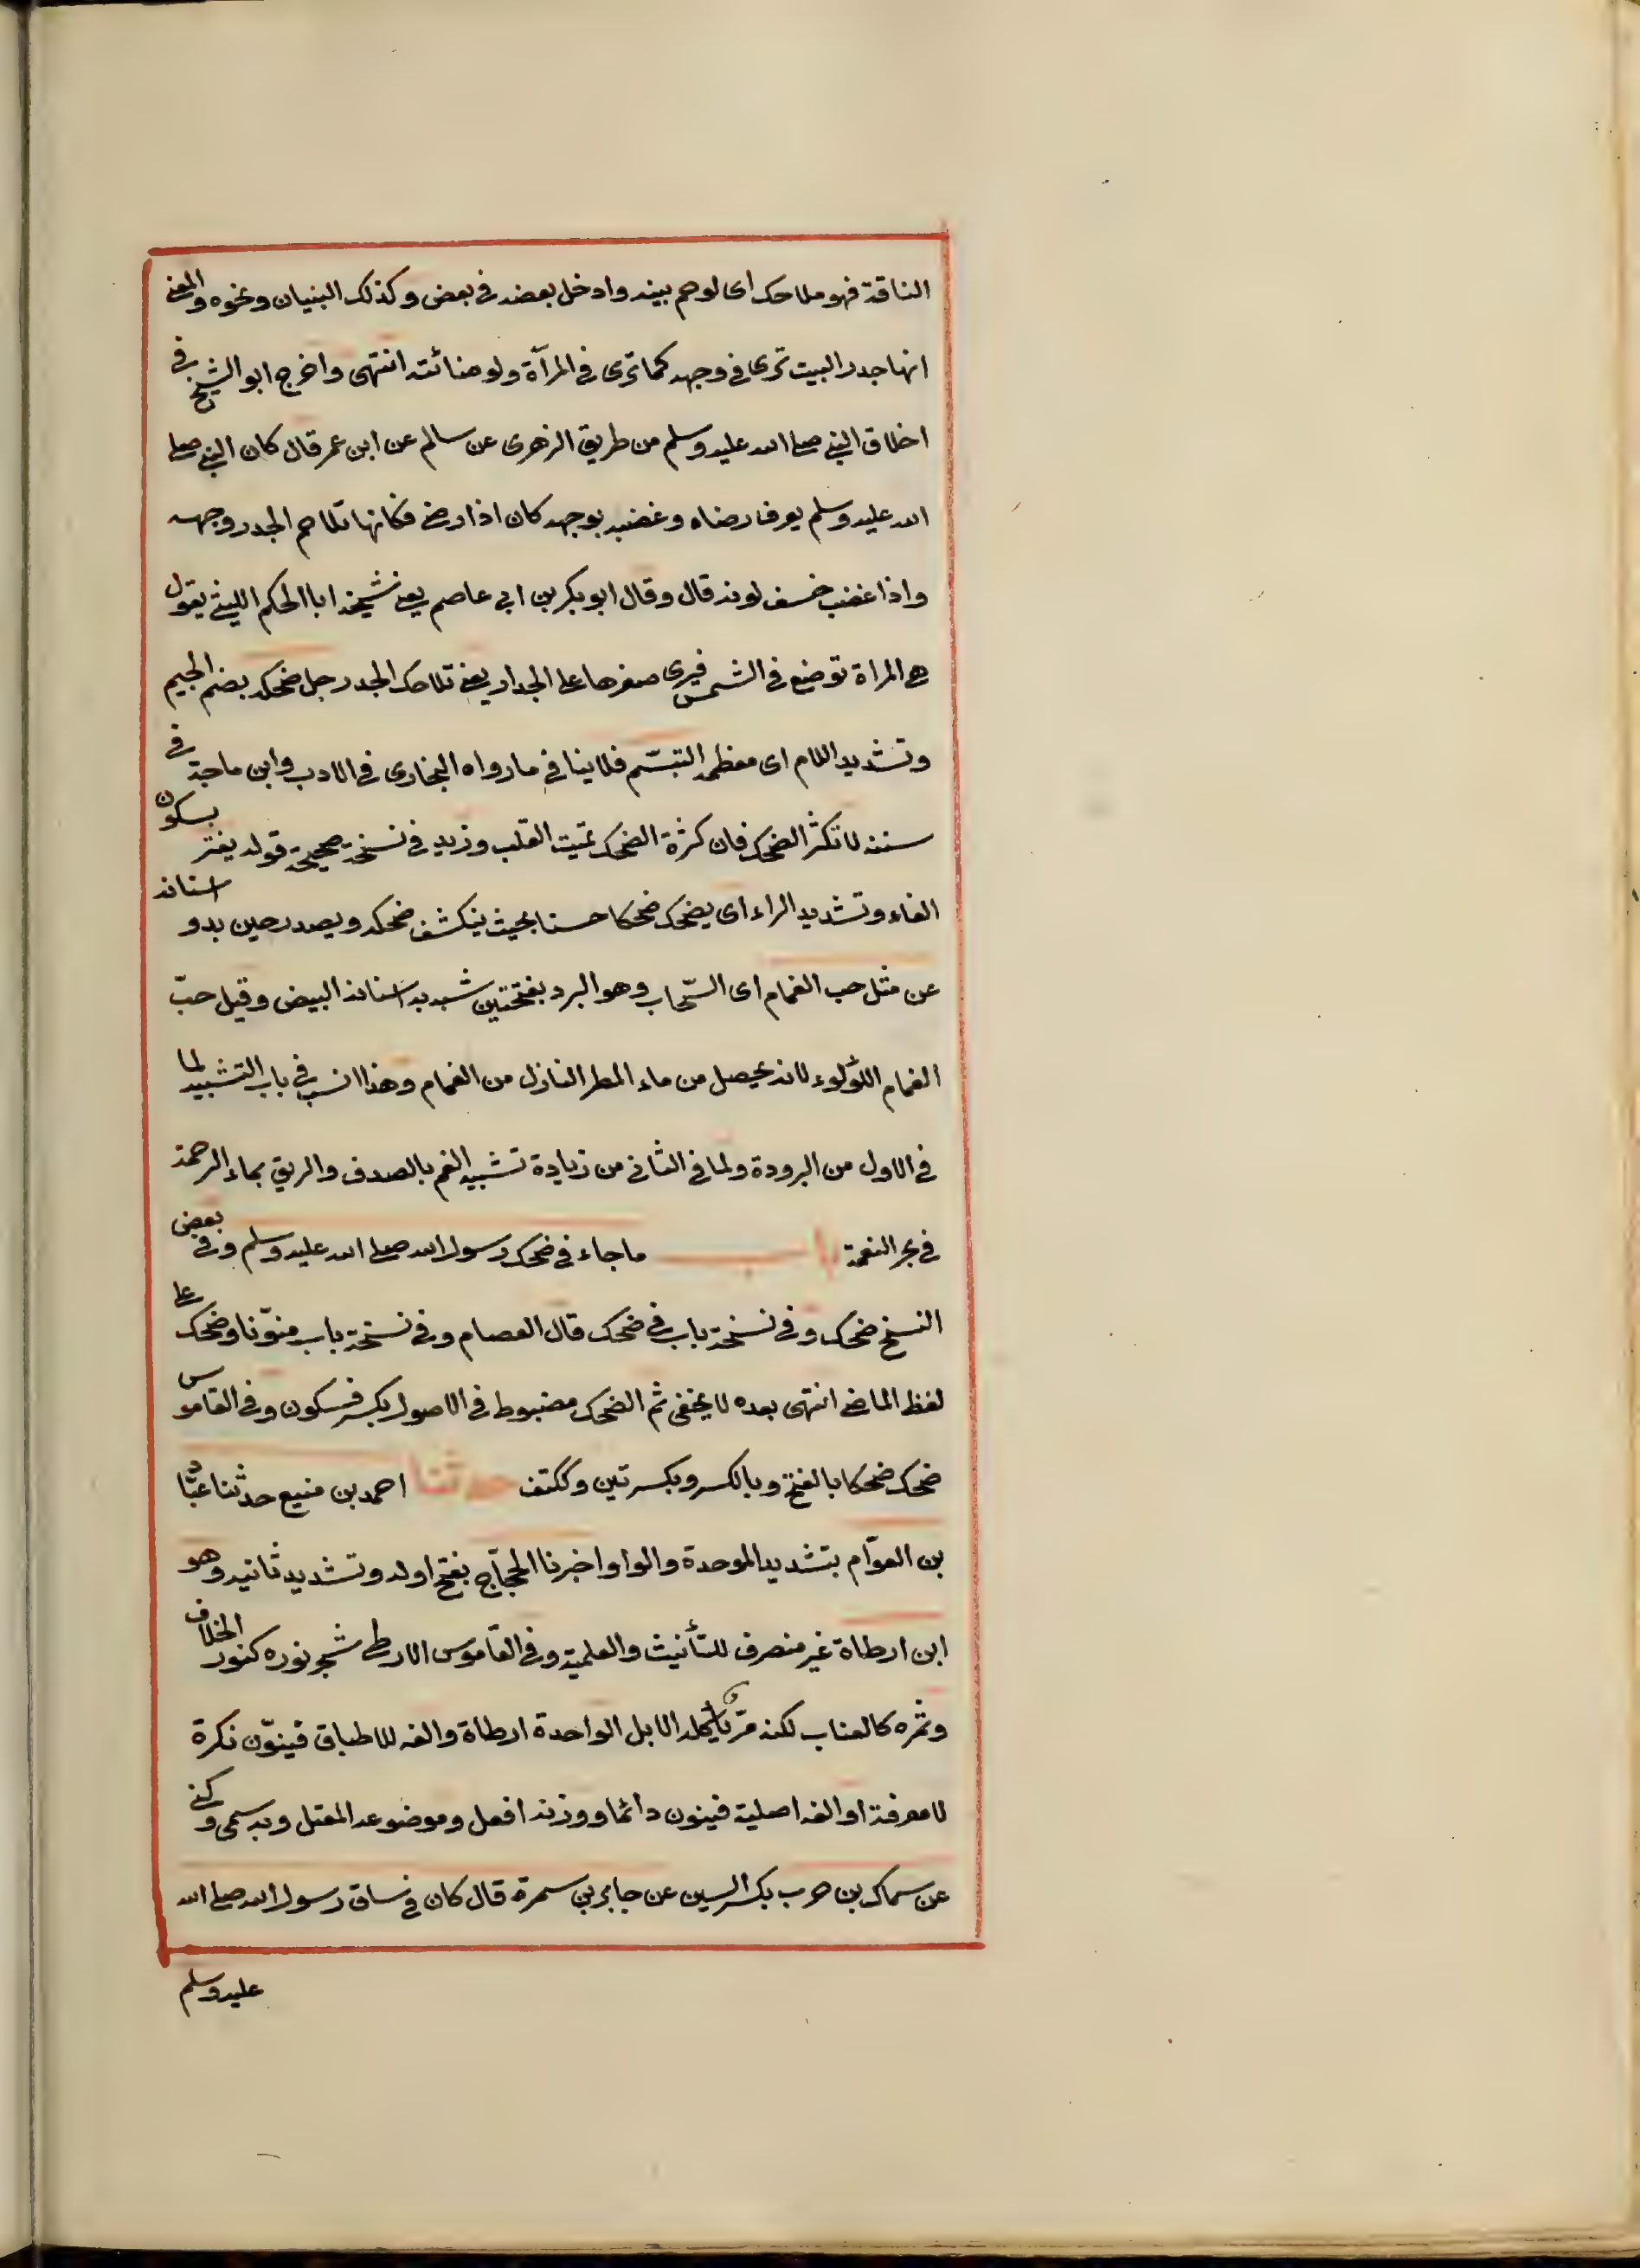 الناقة فهو ملاحك اى لوحم بينه وادخل بعضه فى بعض وكذلك البنيان ونحوه والمعنى
انها جدر البيت ترى فى وجهه كما ترى فى المرآة ولو ضائته انتهى واخرج ابو الشيخ فى
اخلاق النبى صلى الله عليه وسلم من طريق الزهرى عن سالم عن ابن عمر قال كان النبى صلى
الله عليه وسلم يعرف رضاه وغضبه بوجهه كان اذا رضى فكانها تلاحم الجدر وجهه
واذا غضب خسف لونه قال وقال ابو بكر بن ابى عاصم يعنى شيخه ابا الحكم الليثى يقول
هى المراة توضع فى الشمس فيرى ضوءها على الجدار يعنى تلاحك الجدر جل ضحكه بضم الجيم
وتشديد اللام اى معظمه التبسّم فلا ينافى ما رواه البخارى فى الادب وابن ماجة فى
سننه لا تكثر الضحك فان كثرة الضحك تميت القلب وزيد فى نسخة صحيحة قوله يفتر بسكون
الفاء وتشديد الراء اى يضحك ضحكا حسنا بحيث ينكشف ضحكه ويصدر حين بدو اسنانه
عن مثل حب الغمام اى السّحاب وهو البرد بفتحتين شبه به اسنانه البيض وقيل حبّ
الغمام اللؤلوء لانه يحصل من ماء المطر النازل من الغمام وهذا انسب فى باب التشبيه لما
فى الاول من البرودة ولما فى الثانى من زيادة تشبيه الفم بالصدف والريق بماء الرحمة
فى بحر النعمة باب ما جاء فى ضحك رسول الله صلى الله عليه وسلم وفى بعض
النسخ ضحك وفى نسخة باب فى ضحك قال العصام وفى نسخة باب منوّنا وضحك على
لفظ الماضى انتهى بعده لا يخفى ثم الضحك مضبوط فى الاصول بكسر فسكون وفى القاموس
ضحك ضحكا بالفتح وبالكسر وبكسرتين وككتف حدثنا احمد بن منيع حدثنا عبّاد
بن العوّام بتشديد الموحدة والواو اخبرنا الحجّاج بفتح اوله وتشديد ثانيه وهو
ابن ارطاة غير منصرف للتأنيث والعلمية وفى القاموس الارطى شجر نوره كنور الخلاف
وثمره كالعناب لكنه مرّ تأكله الابل الواحدة ارطاة والفه للاطباق فينوّن نكرة
لا معرفة او الفه اصلية فينون دائما ووزنه افعل وموضوعه المعتل وبه سمى وكنى
عن سماك بن حرب بكسر السين عن جابر بن سمرة قال كان فى ساق رسول الله صلى الله
عليه وسلم